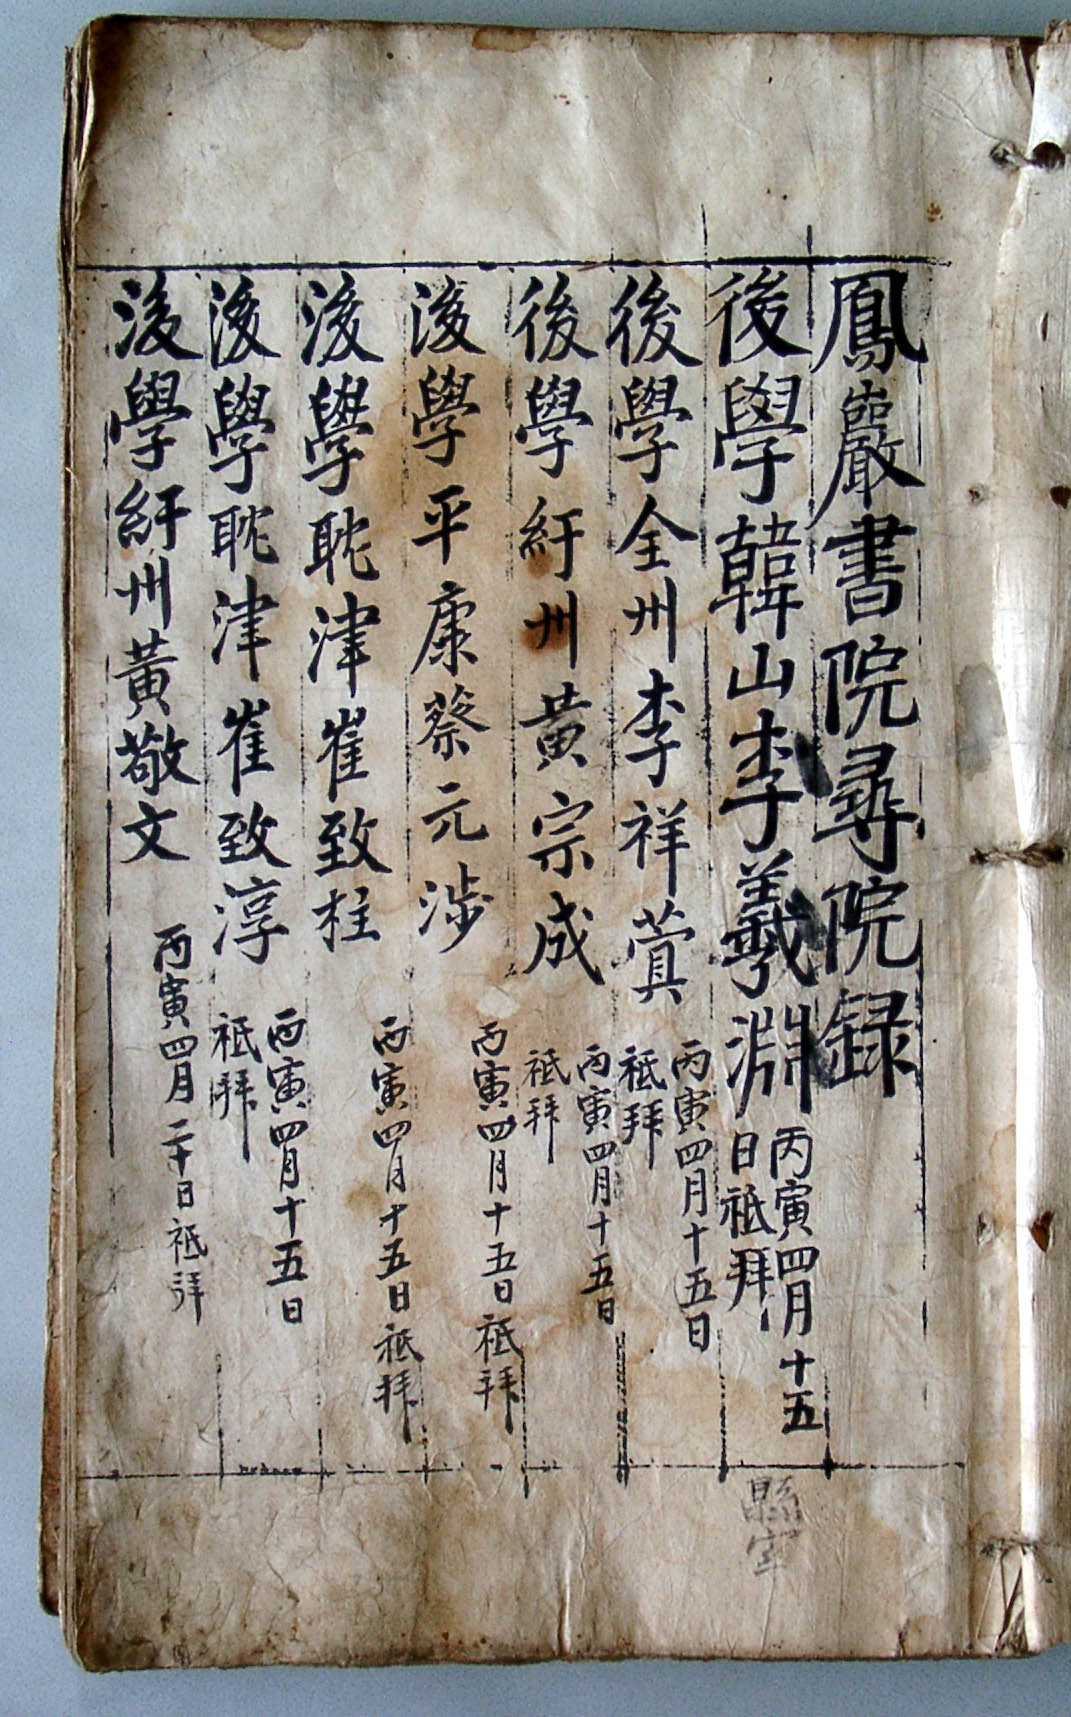 鳳巖書院尋院録
後學韓山李羲淵 丙寅四月十五
日祗拜
縣宰
後學全州李祥蓂 丙寅四月十五日
祗拜
後學紆州黃宗成 丙寅四月十五日
祗拜
後學平康蔡元涉 丙寅四月十五日祗拜
後學耽津崔致柱 丙寅四月十五日祗拜
後學耽津崔致淳 丙寅四月十五日
祗拜
後學紆州黃敬文 丙寅四月二十日祗拜